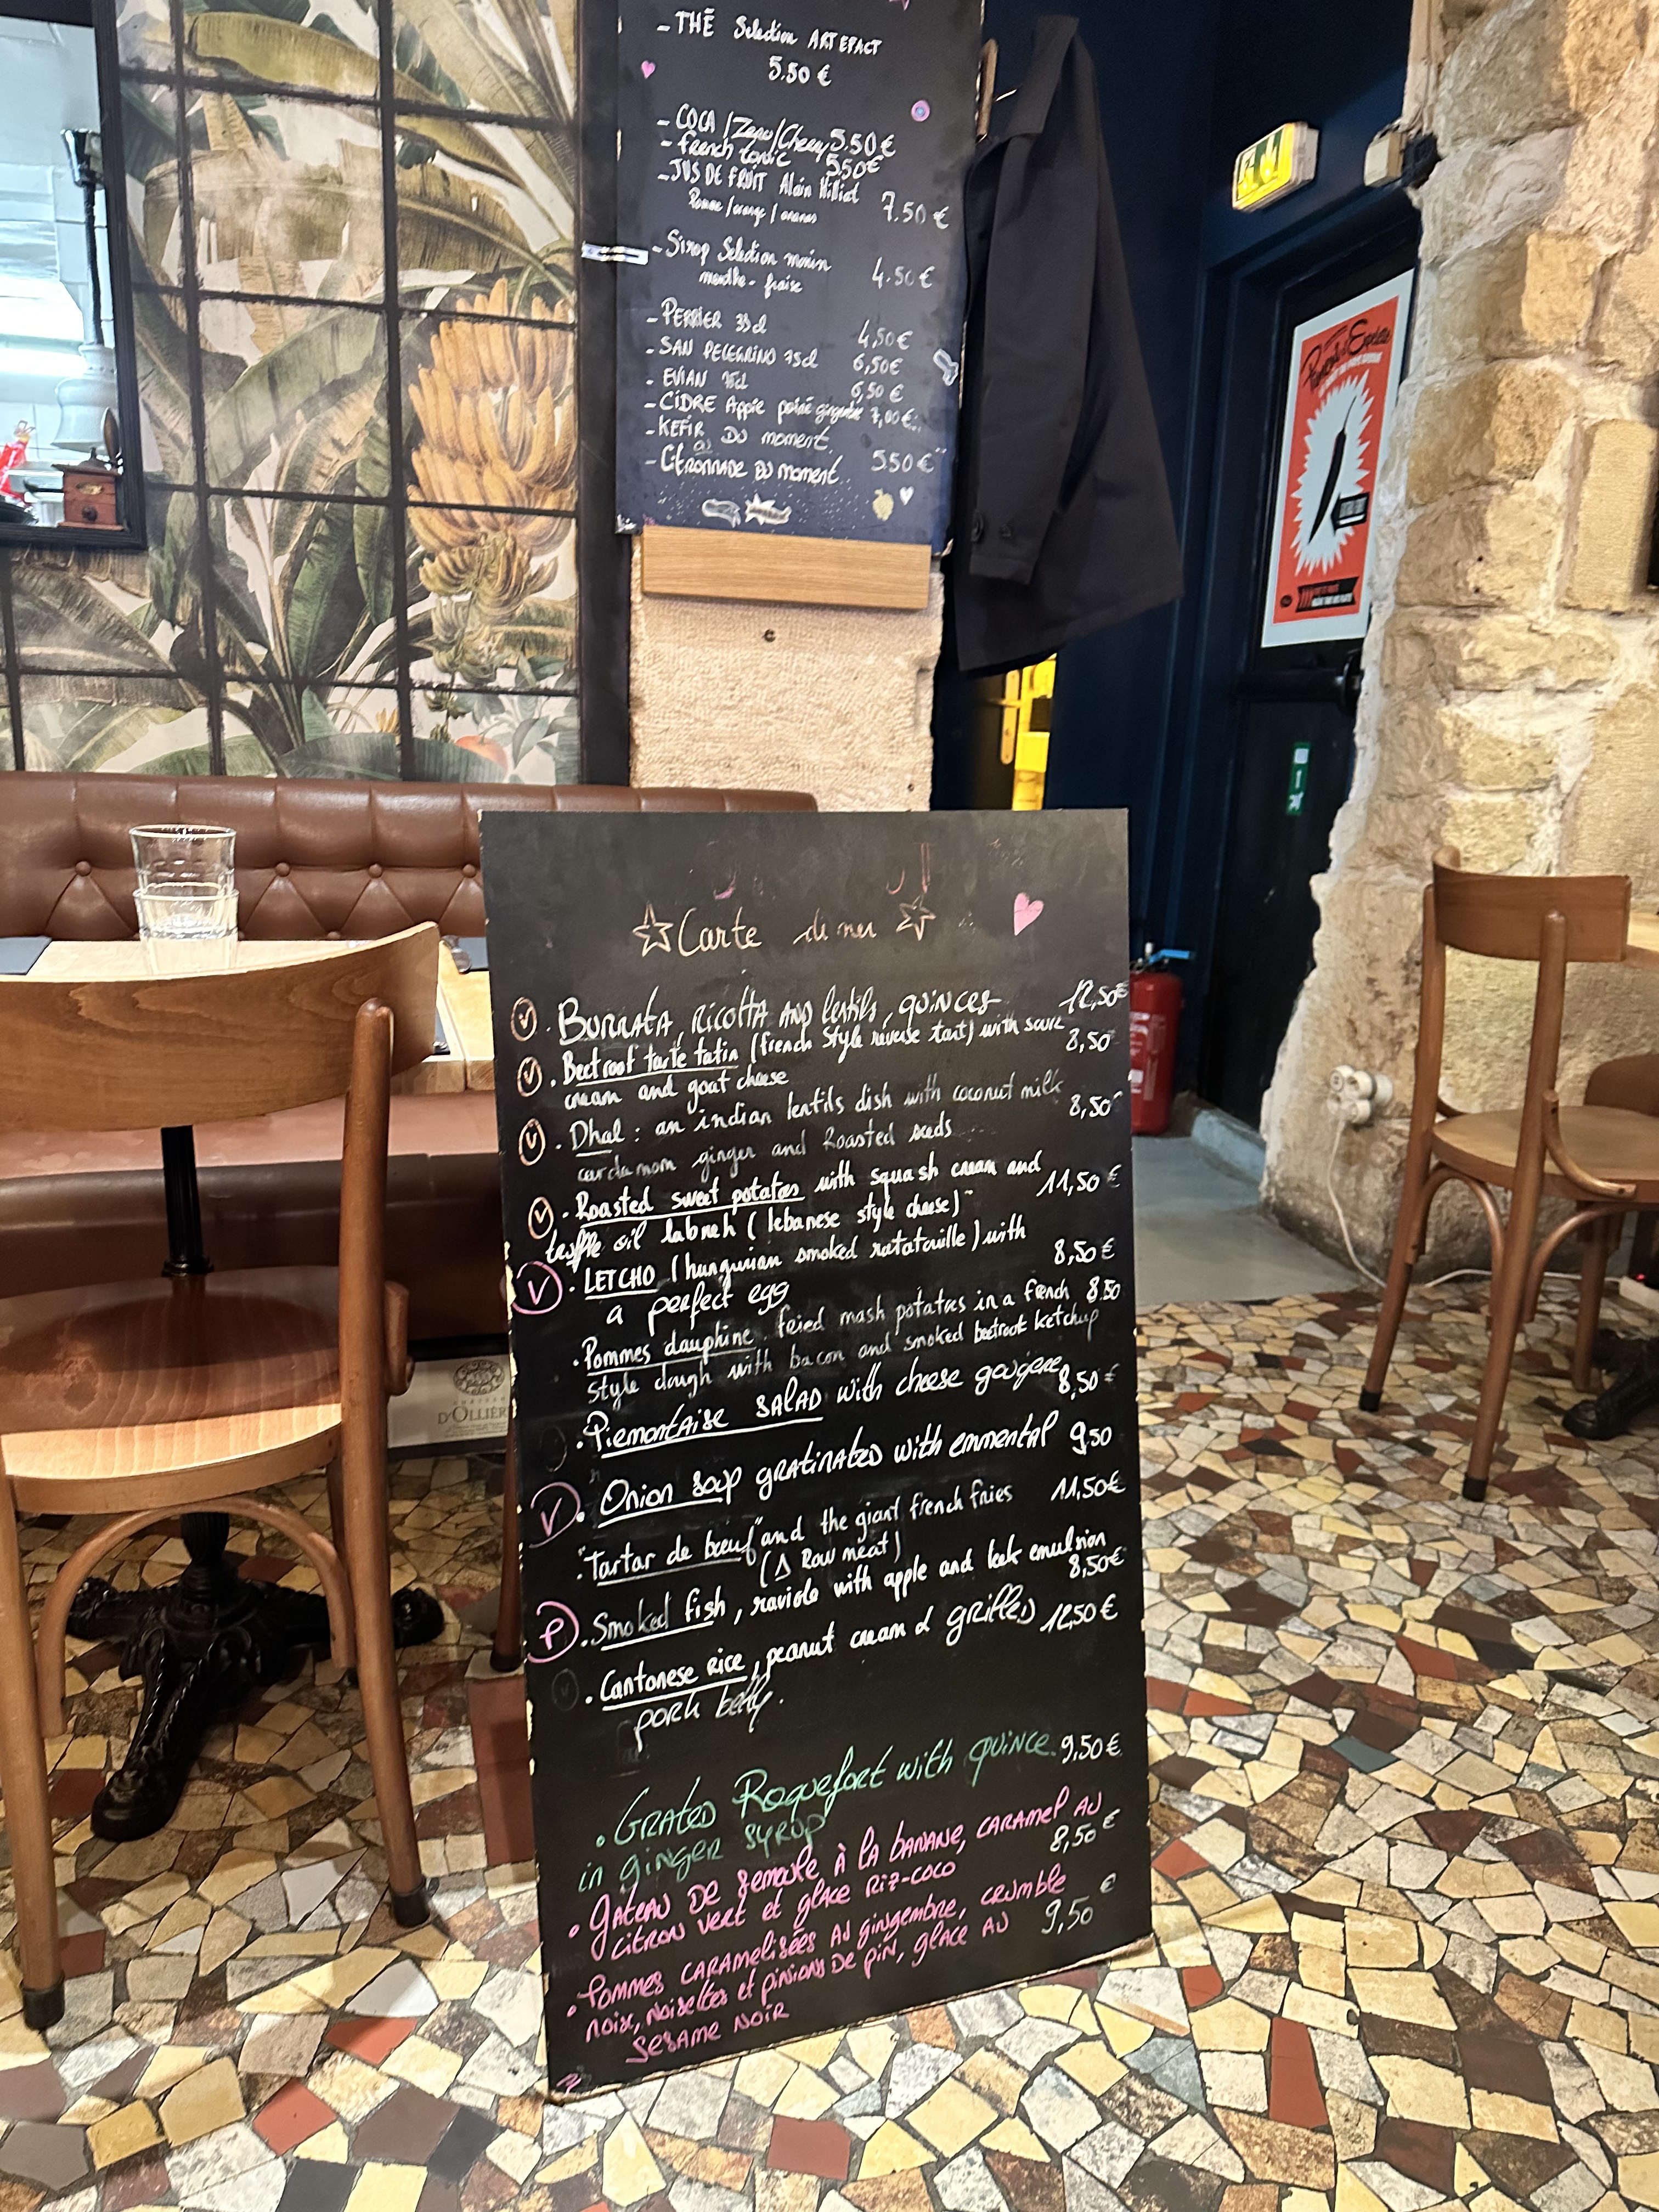 - THÉ Selection ARTEFACT
5.50 €
- COCA / Zero / Cherry 5.50 €
- french tonic 5.50€
- JUS DE FRUIT Alain Milliat
Pomme / orange / ananas 7.50 €
- Sirop Selection monin
menthe - fraise 4.50 €
- PERRIER 33cl 4,50€
- SAN PELEGRINO 75cl 6,50€
- EVIAN 75cl 6,50 €
- CIDRE Appie poiré gingembre 7,00€
- KEFIR DU moment
ou
- CITRONNADE DU moment 5.50 €
Carte diner
V . BURRATA, RICOTTA AND lentils, QUINCES 12,50€
V . Beetroot tarte tatin (french style reverse tart) with sour 8,50
cream and goat cheese
V . Dhal : an indian lentils dish with coconut milk 8,50
cardamom ginger and Roasted seeds
V . Roasted sweet potatoes with squash cream and 11,50 €
truffle oil labneh (lebanese style cheese)
V . LETCHO (hungurian smoked ratatouille) with 8,50 €
a perfect egg
. Pommes dauphine fried mash potatoes in a french 8.50
style dough with bacon and smoked beetroot ketchup
. Piemontaise SALAD with cheese gougere 8,50 €
V . Onion soup GRATINATED with emmental 9.50
. "Tartar de bœuf" and the giant french fries 11,50€
(Δ Raw meat)
P . Smoked fish, raviole with apple and leek emulsion 8,50€
. Cantonese RICE, peanut cream & grilled 12,50 €
pork belly.
. GRATED Roquefort with QUINCE 9,50 €
in ginger syrup
. GÂTEAU DE semoule À la BANANE, CARAMEL AU 8,50 €
citron vert et glace Riz-coco
. Pommes CARAMELISÉES AU gingembre, crumble
noix, noisettes et pinions DE pin, glace AU 9,50 €
SESAME NOIR
D'OLLIÈR